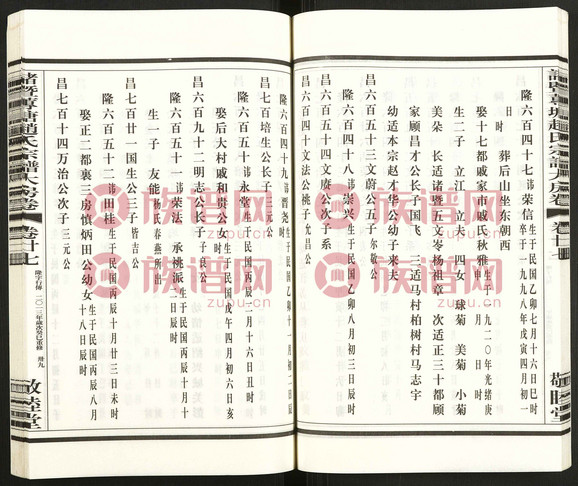 隆六百四十七 諱荣信 生于民国乙卯七月十六日巳时 卒于一九九八年戊寅四月初一
日时 葬后山坐东朝西
娶十七都戚家市戚氏秋雅
生二子 立江 立夫 四女 球菊 美菊 小菊
美朵 长适诸暨五文岺杨祖章 次适正三十都顾
家顾昌才公长子国飞 三适马村柏树村马志宇
幼适本宗赵才华公幼子来夫
昌六百五十三文蔚公五子
隆六百四十八 諱崇兴 生于民国乙卯八月初三日辰时
昌六百四十四文赓公次子
昌六百四十文法公桃子允昌公
隆六百四十九 諱晋尧 生于民国乙卯十一月初二日辰时
昌七百培生公长子三元公
隆六百五十 諱永堂 生于民国丙辰二月十六日丑时
娶后大村戚可和贵公女 生于民国戊午四月初六日亥时
昌六百九十二明志公长子
隆六百五十一 諱荣法 承桃派 生于民国丙辰十月十二日辰时
生一子 友能
昌七百廿一国生公三子
隆六百五十二 諱田桂 生于民国丙辰十月廿三日未时
娶正二都裏三房慎炳田公幼女 生于民国丙辰八月十八日辰时
昌七百四十万治公次子三元公
諸暨草塘趙氏宗譜大房卷
卷廿七
隆字行传
二〇一三年歲次癸巳重修
卅九
敬睦堂
族谱网
zupu.cn